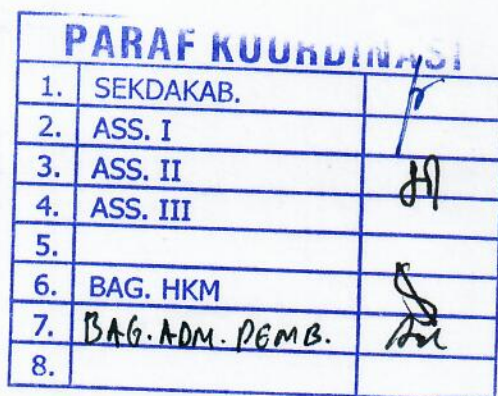 PARAF KOORDINASI
1. SEKDAKAB.
2. ASS. I
3. ASS. II
4. ASS. III
5.
6. BAG. HKM
7. BAG. ADM. PEMB.
8.